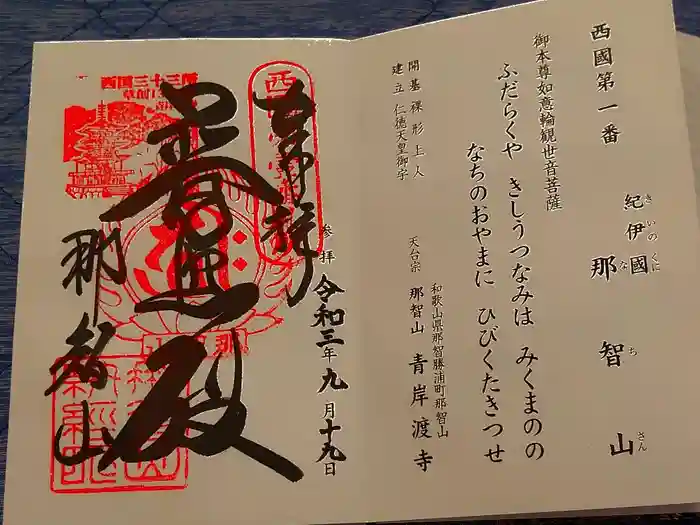 西國第一番
紀伊國
きいのくに
那智山
なちさん
御本尊如意輪観世音菩薩
ふだらくや きしうつなみは みくまのの
なちのおやまに ひびくたきつせ
開基 裸形上人
建立 仁徳天皇御宇
天台宗 那智山 青岸渡寺
和歌山県那智勝浦町那智山
奉拝
参拝 令和三年九月十九日
普照殿
那智山